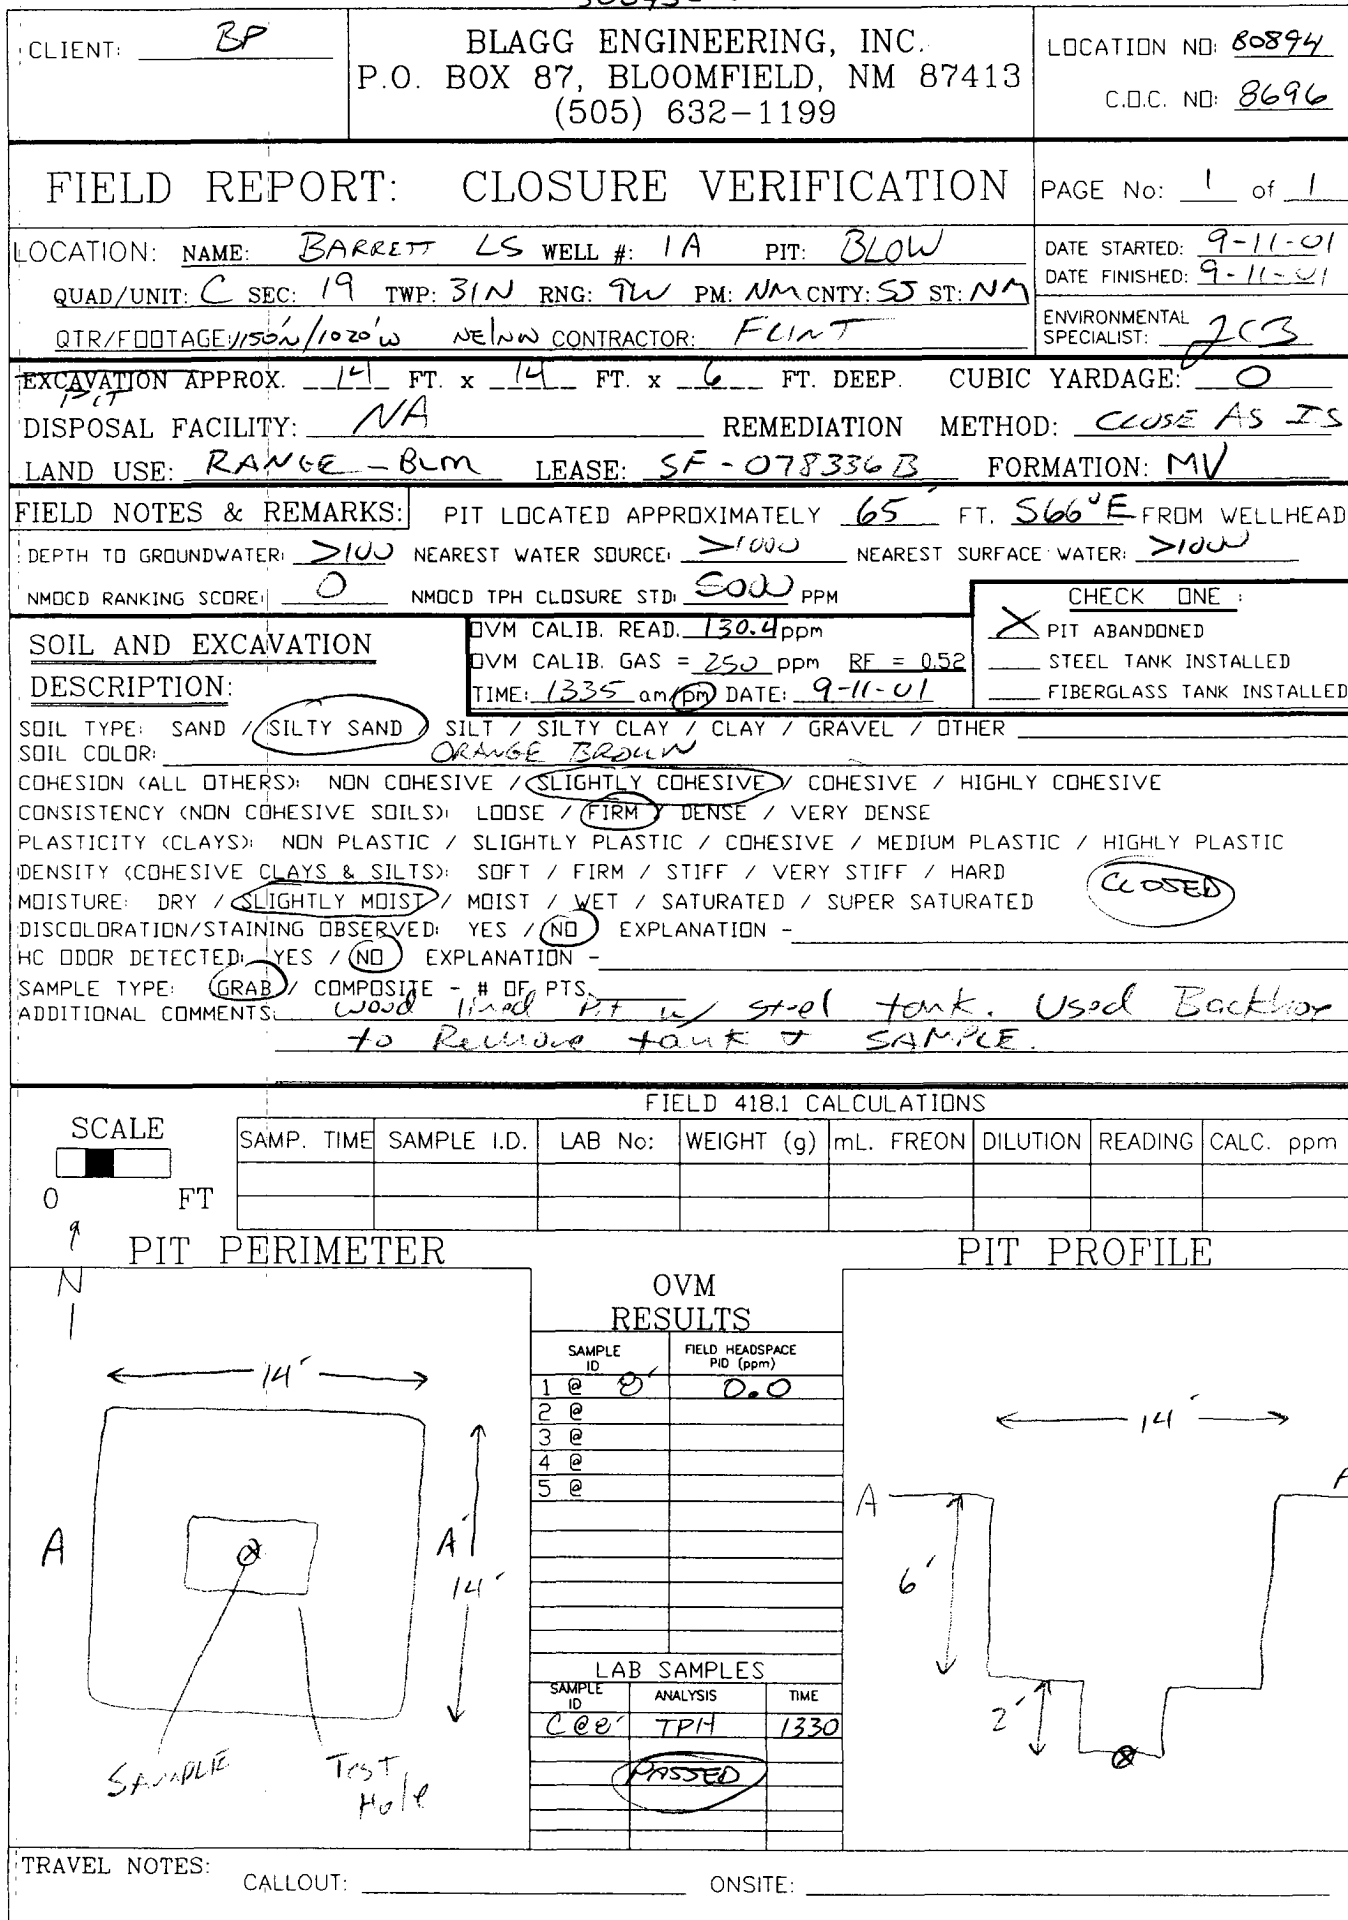 CLIENT: BP
BLAGG ENGINEERING, INC.
P.O. BOX 87, BLOOMFIELD, NM 87413
(505) 632-1199
LOCATION NO: 80894
C.O.C. NO: 8696
FIELD REPORT: CLOSURE VERIFICATION
PAGE No: 1 of 1
LOCATION: NAME: BARRETT LS WELL #: 1A PIT: BLOW
QUAD/UNIT: C SEC: 19 TWP: 31N RNG: 9W PM: NM CNTY: SJ ST: NM
QTR/FOOTAGE: 1150'N/1020'W NE/NW CONTRACTOR: FLINT
DATE STARTED: 9-11-01
DATE FINISHED: 9-11-01
ENVIRONMENTAL
SPECIALIST: JCB
EXCAVATION APPROX. 14 FT. x 14 FT. x 6 FT. DEEP. CUBIC YARDAGE: 0
PIT
DISPOSAL FACILITY: NA REMEDIATION METHOD: CLOSE AS IS
LAND USE: RANGE - BLM LEASE: SF-078336B FORMATION: MV
FIELD NOTES & REMARKS: PIT LOCATED APPROXIMATELY 65' FT. S66°E FROM WELLHEAD
DEPTH TO GROUNDWATER: >100 NEAREST WATER SOURCE: >1000 NEAREST SURFACE WATER: >1000
NMOCD RANKING SCORE: 0 NMOCD TPH CLOSURE STD: 5000 PPM
CHECK ONE :
X PIT ABANDONED
STEEL TANK INSTALLED
FIBERGLASS TANK INSTALLED
SOIL AND EXCAVATION
DESCRIPTION:
OVM CALIB. READ. 130.4 ppm
OVM CALIB. GAS = 250 ppm RF = 0.52
TIME: 1335 am/pm DATE: 9-11-01
SOIL TYPE: SAND / SILTY SAND / SILT / SILTY CLAY / CLAY / GRAVEL / OTHER
SOIL COLOR: ORANGE BROWN
COHESION (ALL OTHERS): NON COHESIVE / SLIGHTLY COHESIVE / COHESIVE / HIGHLY COHESIVE
CONSISTENCY (NON COHESIVE SOILS): LOOSE / FIRM / DENSE / VERY DENSE
PLASTICITY (CLAYS): NON PLASTIC / SLIGHTLY PLASTIC / COHESIVE / MEDIUM PLASTIC / HIGHLY PLASTIC
DENSITY (COHESIVE CLAYS & SILTS): SOFT / FIRM / STIFF / VERY STIFF / HARD
CLOSED
MOISTURE: DRY / SLIGHTLY MOIST / MOIST / WET / SATURATED / SUPER SATURATED
DISCOLORATION/STAINING OBSERVED: YES / NO EXPLANATION -
HC ODOR DETECTED: YES / NO EXPLANATION -
SAMPLE TYPE: GRAB / COMPOSITE - # OF PTS.
ADDITIONAL COMMENTS: Wood lined Pit w/ steel tank. Used Backhoe
to Remove tank & SAMPLE.
FIELD 418.1 CALCULATIONS
SCALE
0 FT
SAMP. TIME SAMPLE I.D. LAB No: WEIGHT (g) mL. FREON DILUTION READING CALC. ppm
N
PIT PERIMETER
14'
A
A'
14'
SAMPLE
Test
Hole
OVM
RESULTS
SAMPLE
ID
FIELD HEADSPACE
PID (ppm)
1 @ 8' 0.0
2 @
3 @
4 @
5 @
LAB SAMPLES
SAMPLE
ID
ANALYSIS TIME
C@8' TPH 1330
PASSED
PIT PROFILE
14'
A
6'
2'
TRAVEL NOTES:
CALLOUT: ONSITE: